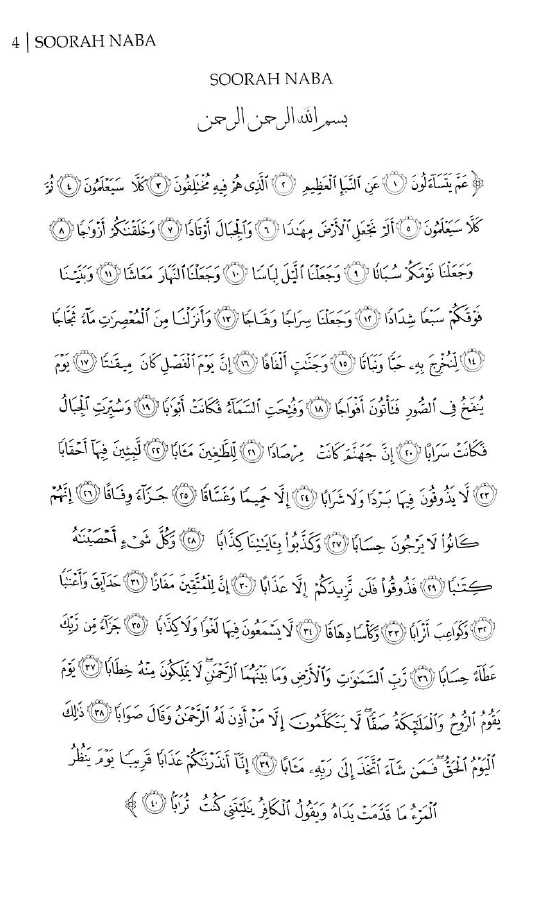 4 | SOORAH NABA
SOORAH NABA
بسم الله الرحمن الرحمن
﴿ عَمَّ يَتَسَآءَلُونَ ١ عَنِ ٱلنَّبَإِ ٱلْعَظِيمِ ٢ ٱلَّذِى هُمْ فِيهِ مُخْتَلِفُونَ ٣ كَلَّا سَيَعْلَمُونَ ٤ ثُمَّ
كَلَّا سَيَعْلَمُونَ ٥ أَلَمْ نَجْعَلِ ٱلْأَرْضَ مِهَٰدًا ٦ وَٱلْجِبَالَ أَوْتَادًا ٧ وَخَلَقْنَٰكُمْ أَزْوَٰجًا ٨
وَجَعَلْنَا نَوْمَكُمْ سُبَاتًا ٩ وَجَعَلْنَا ٱلَّيْلَ لِبَاسًا ١٠ وَجَعَلْنَا ٱلنَّهَارَ مَعَاشًا ١١ وَبَنَيْنَا
فَوْقَكُمْ سَبْعًا شِدَادًا ١٢ وَجَعَلْنَا سِرَاجًا وَهَّاجًا ١٣ وَأَنزَلْنَا مِنَ ٱلْمُعْصِرَٰتِ مَآءً ثَجَّاجًا
١٤ لِّنُخْرِجَ بِهِۦ حَبًّا وَنَبَاتًا ١٥ وَجَنَّٰتٍ أَلْفَافًا ١٦ إِنَّ يَوْمَ ٱلْفَصْلِ كَانَ مِيقَٰتًا ١٧ يَوْمَ
يُنفَخُ فِى ٱلصُّورِ فَتَأْتُونَ أَفْوَاجًا ١٨ وَفُتِحَتِ ٱلسَّمَآءُ فَكَانَتْ أَبْوَٰبًا ١٩ وَسُيِّرَتِ ٱلْجِبَالُ
فَكَانَتْ سَرَابًا ٢٠ إِنَّ جَهَنَّمَ كَانَتْ مِرْصَادًا ٢١ لِّلطَّٰغِينَ مَـَٔابًا ٢٢ لَّٰبِثِينَ فِيهَآ أَحْقَابًا
٢٣ لَّا يَذُوقُونَ فِيهَا بَرْدًا وَلَا شَرَابًا ٢٤ إِلَّا حَمِيمًا وَغَسَّاقًا ٢٥ جَزَآءً وِفَاقًا ٢٦ إِنَّهُمْ
كَانُوا۟ لَا يَرْجُونَ حِسَابًا ٢٧ وَكَذَّبُوا۟ بِـَٔايَٰتِنَا كِذَّابًا ٢٨ وَكُلَّ شَىْءٍ أَحْصَيْنَٰهُ
كِتَٰبًا ٢٩ فَذُوقُوا۟ فَلَن نَّزِيدَكُمْ إِلَّا عَذَابًا ٣٠ إِنَّ لِلْمُتَّقِينَ مَفَازًا ٣١ حَدَآئِقَ وَأَعْنَٰبًا
٣٢ وَكَوَاعِبَ أَتْرَابًا ٣٣ وَكَأْسًا دِهَاقًا ٣٤ لَّا يَسْمَعُونَ فِيهَا لَغْوًا وَلَا كِذَّٰبًا ٣٥ جَزَآءً مِّن رَّبِّكَ
عَطَآءً حِسَابًا ٣٦ رَّبِّ ٱلسَّمَٰوَٰتِ وَٱلْأَرْضِ وَمَا بَيْنَهُمَا ٱلرَّحْمَٰنِ ۖ لَا يَمْلِكُونَ مِنْهُ خِطَابًا ٣٧ يَوْمَ
يَقُومُ ٱلرُّوحُ وَٱلْمَلَٰٓئِكَةُ صَفًّا ۖ لَّا يَتَكَلَّمُونَ إِلَّا مَنْ أَذِنَ لَهُ ٱلرَّحْمَٰنُ وَقَالَ صَوَابًا ٣٨ ذَٰلِكَ
ٱلْيَوْمُ ٱلْحَقُّ ۖ فَمَن شَآءَ ٱتَّخَذَ إِلَىٰ رَبِّهِۦ مَـَٔابًا ٣٩ إِنَّآ أَنذَرْنَٰكُمْ عَذَابًا قَرِيبًا يَوْمَ يَنظُرُ
ٱلْمَرْءُ مَا قَدَّمَتْ يَدَاهُ وَيَقُولُ ٱلْكَافِرُ يَٰلَيْتَنِى كُنتُ تُرَٰبًۢا ٤٠ ﴾